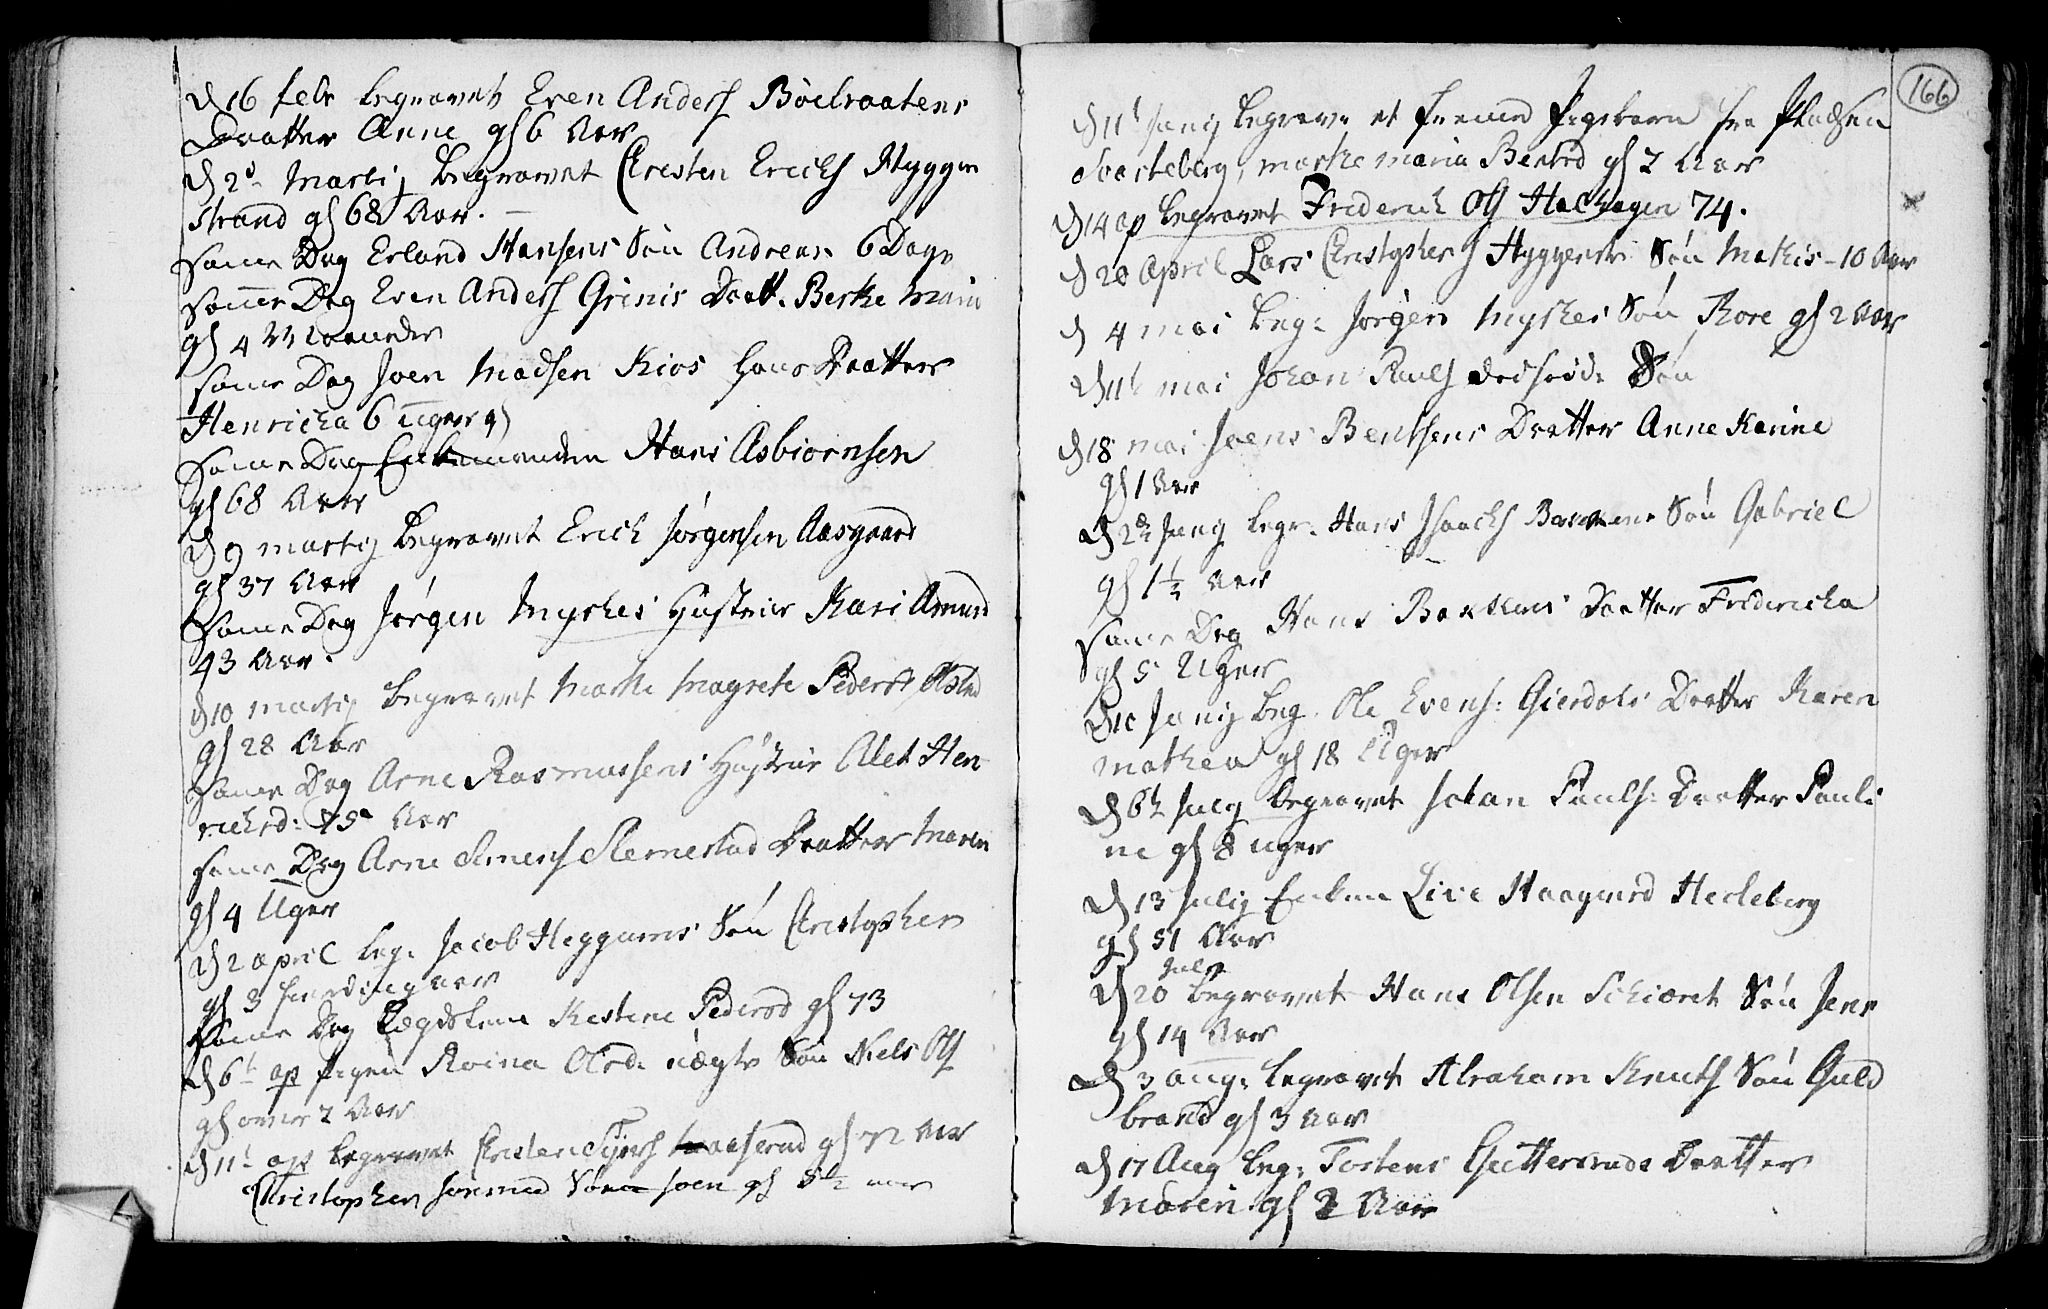 D 16 febr begravet Even Anders Böelraatens
Daatter Anne gl 6 Aar
D 2d Martij begravet Christen Erichs Hyggen
strand gl 68 Aar.
Same Dag Erland Hansens Sön Andreas 6 Dage
Same Dag Even Anders Grinis Daatt. Berthe Maria
gl 4 Maaneder
Same Dag Joen Madsen Kios Daatter
Henricha 6 uger gl
Same Dag Enkemanden Hans Asbiörnsen
gl 68 Aar
D 9 martij begravet Erich Jörgensen Aasgaard
gl 37 Aar
Same Dag Jörgen Myhres Hustrue Kari Amund
43 Aar.
D 10 martij begravet Marthe Magrete Pedersd
gl 28 Aar
Same Dag Arne Rasmussens Hustrue Alet Hen
richsd: 75 Aar
Same Dag Arne Simens Slemestad Daatter Maren
gl 4 Uger
D 2 april beg: Jacob Heggums Sön Christopher
gl 3 fierdingaar
Same Dag Lægdslem Kirstene Pedersd gl 73
D 6t ap Pigen Olsd: uægte Sön Niels Ols
gl 2 Aar
D 11t ap begravet Christen gl 72 Aar
Christophen Sön Joen gl 5 1/2 aar
166
D 11t begrav: et Pigebarn fra Pladsen
Svarteberg, Marthe Maria Bentsd gl 2 Aar
D 14 ap begravet Friderich Ols Hachagen 74.
D 20 April Lars Christophers Hyggens Sön Mathis 10 Aar
D 4 mai beg: Jörgen Myhres Sön Tore gl 2 Aar
D 11t mai Johan Pauls Sön
D 18 mai Jens Bentsens Daatter Anne Karine
gl 1 Aar
D 2de Junij begr. Hans Isaachs Sön Gabriel
gl 1 1/2 Aar
Same Dag Hans Bakkens Daatter Fridericha
gl 5 Uger
D 10 Junij beg. Ole Evens: Gierdals Daatter Karen
Mathea gl 18 Uger
D 6t July begravet Johan Pauls: Daatter Pauli
ne gl 8 uger
D 13 Julij Enken Live Haagensd Herleberg
gl 51 Aar
July
D 20 begravet Hans Olsen Schiæret Sön Jens
gl 14 Aar
D 3 aug: begravet Abraham Knuts Sön Guld
brand gl 3 Aar
D 17 Aug beg: Tostens Guttersruds Daatter
Maren gl 2 Aar